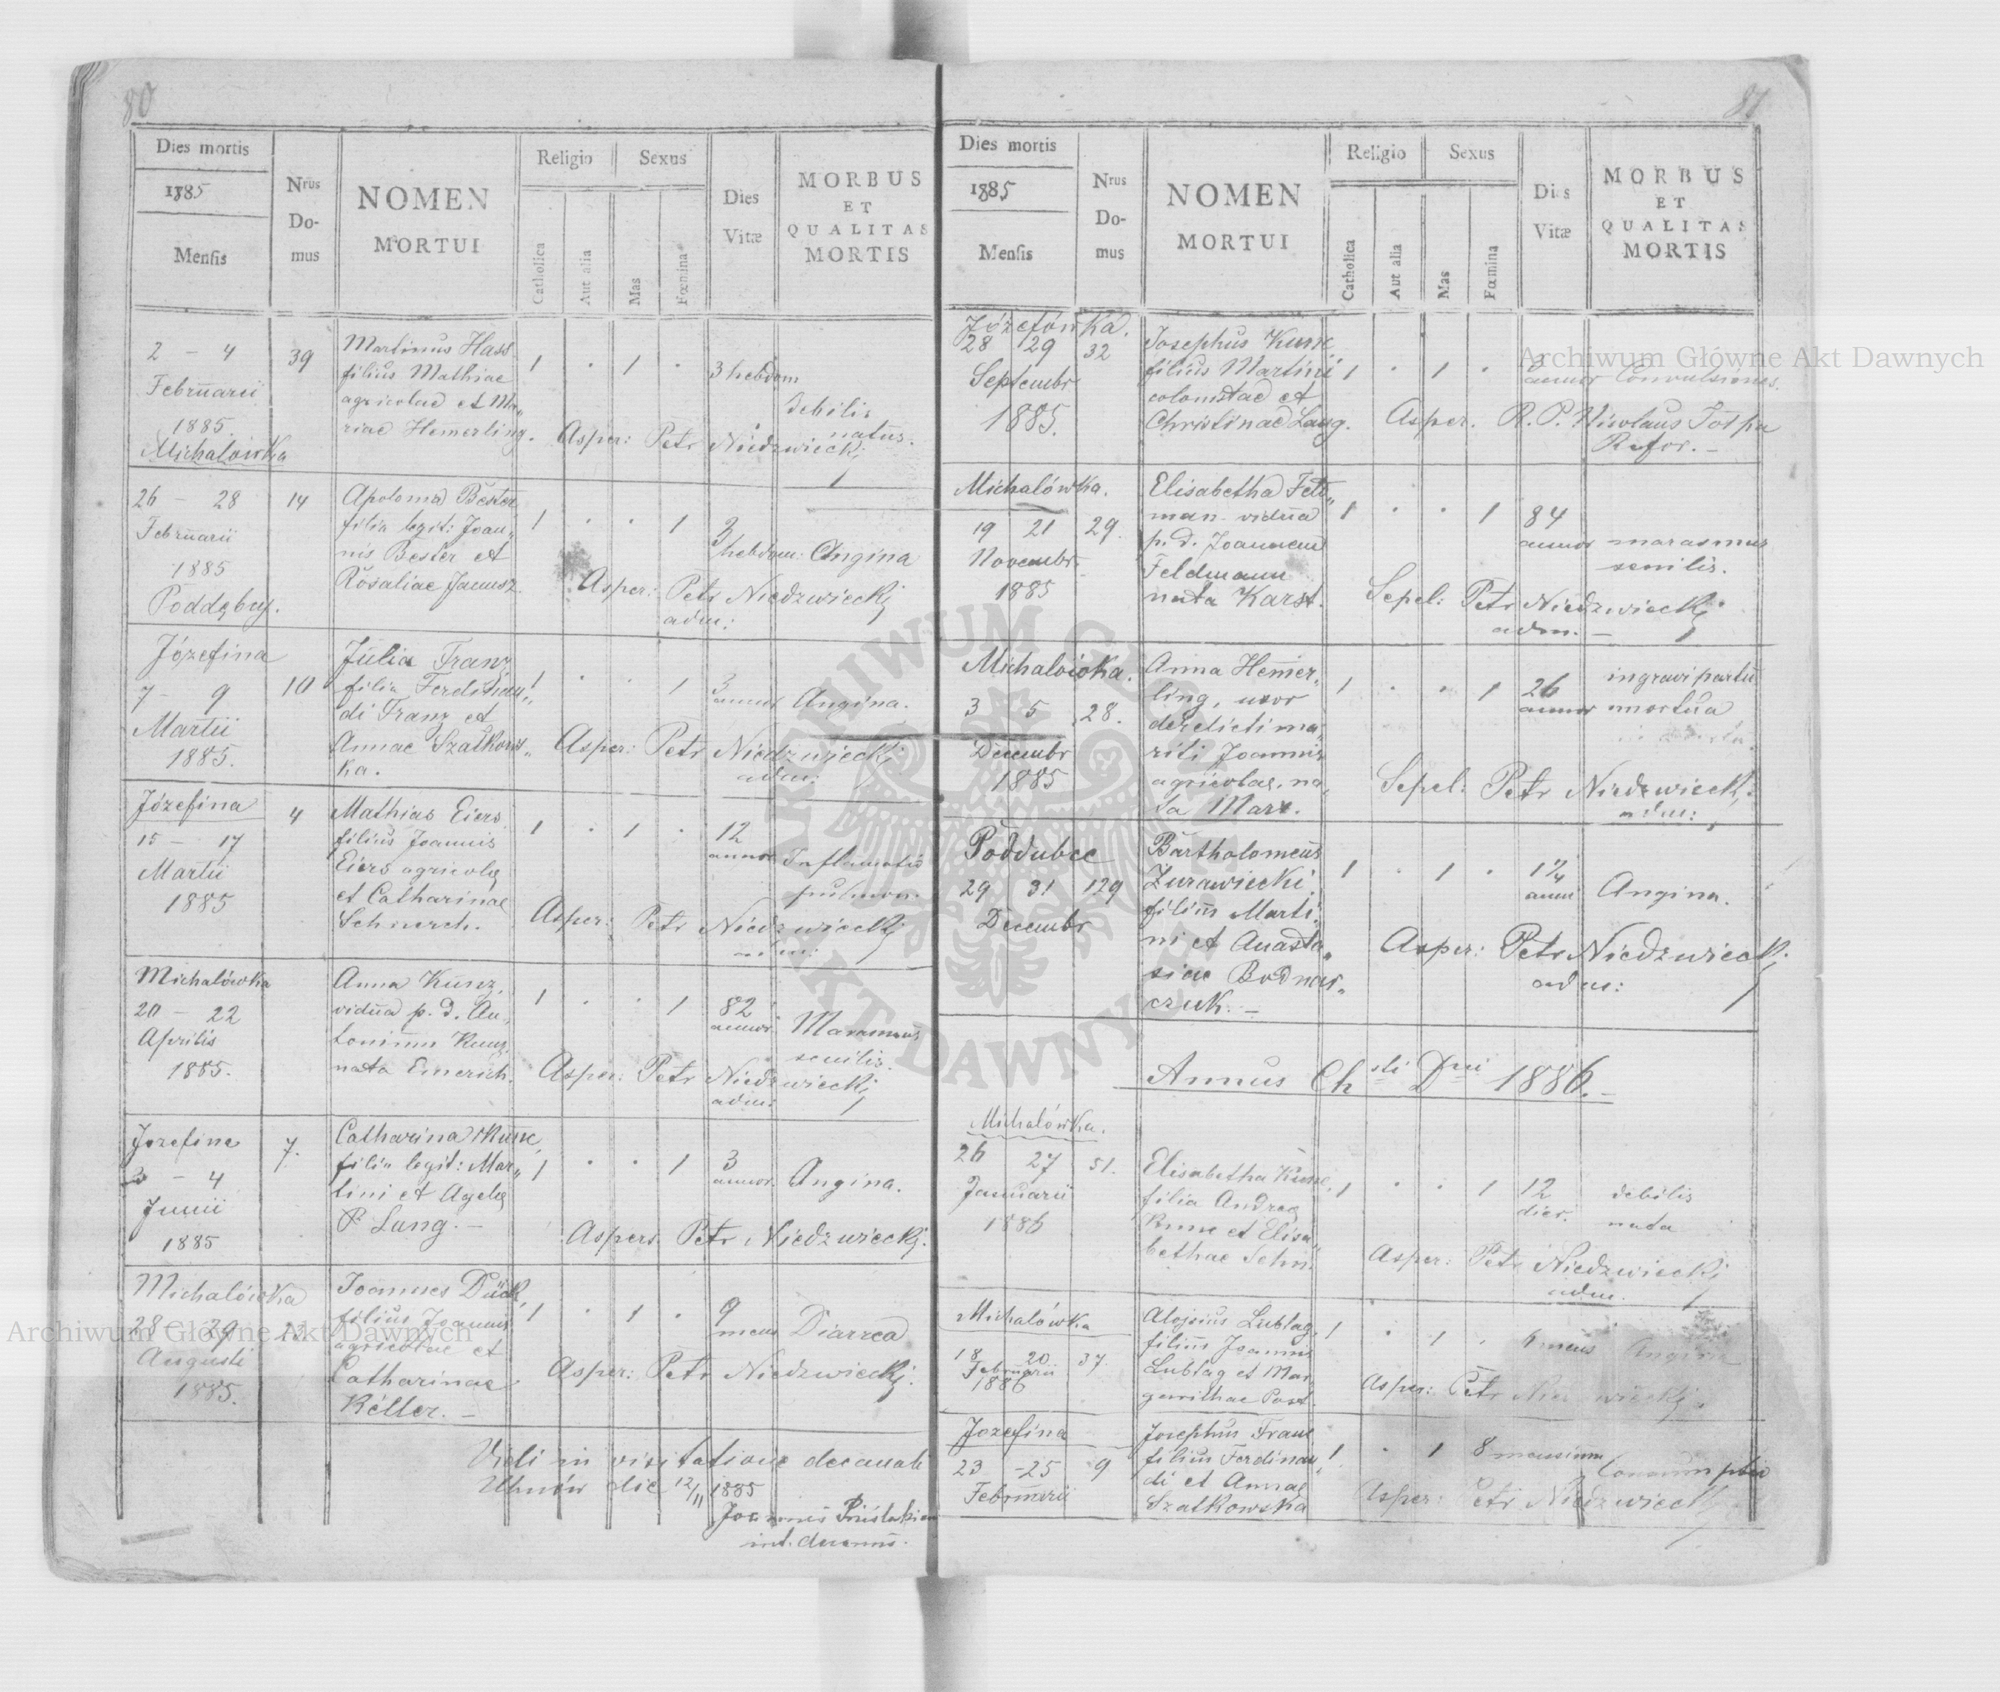 80
Dies mortis
1885
Mensis
Nrus
Do-
mus
NOMEN
MORTUI
Religio
Catholica
Aut alia
Sexus
Mas
Fœmina
Dies
Vitæ
MORBUS
ET
QUALITAS
MORTIS
2 - 4
Februarii
1885.
Michalówka
39
Martinus Hass
filius Mathiae
agricolae et Ma„
riae Hemerling.
1 . 1 .
3 hebdom
debilis
natus.
Asper: Petr Niedzwiecki
26 - 28
Februarii
1885
Poddębey.
14
Apolonia Bester
filia legit: Joan„
nis Bester et
Rosaliae Janusz
1 . . 1
3
hebdom: Angina
Asper: Petr Niedzwiecki
adm:
Józefina
7 - 9
Martii
1885.
10
Julia Franz
filia Ferdinan„
di Franz et
Annae Szatkows„
ka.
1 . . 1
3
annor Angina.
Asper: Petr Niedzwiecki
adm:
Józefina
15 - 17
Martii
1885
4
Mathias Eiers
filius Joannis
Eiers agricolę
et Catharinae
Schnerch.
1 . 1 .
12
annor Inflamatio
pulmon.
Asper: Petr Niedzwiecki
adm:
Michalówka
20 - 22
Aprilis
1885.
Anna Kunz,
vidua p. d. An„
tonium Kunz,
nata Emerich.
1 . . 1
82
annor. Marasmus
senilis.
Asper: Petr Niedzwiecki
adm:
Jozefina
3 - 4
Junii
1885
7.
Catharina Kunc,
filia legit: Mar„
tini et Agelę
P. Lang. -
1 . . 1
3
annor. Angina.
Aspers. Petr Niedzwiecki.
Michalówka
28 - 29
Augusti
1885.
12
Joannes Dück,
filius Joannis
agricolae et
Catharinae
Keller. -
1 . 1 .
9
mens Diarrea
Asper: Petr Niedzwiecki.
Vidi in visitatione decanali
Uhnów die 12/11 1885
81
Dies mortis
1885
Mensis
Nrus
Do-
mus
NOMEN
MORTUI
Religio
Catholica
Aut alia
Sexus
Mas
Fœmina
Dies
Vitæ
MORBUS
ET
QUALITAS
MORTIS
Józefówka.
28 29
Septembr
1885.
32
Josephus Kunc
filius Martini
colonistae et
Christinae Lang.
1 . 1 .
annor Convulsiones.
Asper. R. P. Nicolaus
Refor. -
Michalówka.
19 21
Novembr.
1885
29.
Elisabetha Feld„
man vidua
p. d. Joannem
Feldmann
nata Karst.
1 . . 1
84
annor marasmus
senilis.
Sepel: Petr Niedzwiecki
adm. -
Michalówka.
3 5
Decembr
1885
28.
Anna Hemer„
ling, uxor
derelicti ma„
riti Joannis
agricolae, na„
ta Marx.
1 . . 1
26
annor
in gravi partu
mortua
Sepel: Petr Niedzwiecki
adm:
Poddubce
29 31
Decembr
129
Bartholomeus
Zurawiecki
filius Marti„
ni et Anasta„
siae Bodnar„
czuk. -
1 . 1 .
1 1/4
anni Angina.
Asper: Petr Niedzwiecki
adm:
Annus Chsti Dni 1886. -
Michalówka.
26 27
Januarii
1886
51.
Elisabetha Kunc,
filia Andreę
Kunc et Elisa„
bethae Sehn.
1 . . 1
12
dier.
debilis
nata
Asper: Petr Niedzwiecki
adm.
Michalówka
18 20
Februarii
1886
37.
Alojsius Lubtag,
filius Joannis
Lubtag et Mar„
garithae Post.
1 . 1 .
6 mens Angina
Asper: Petr Niedzwiecki.
Jozefina
23 - 25
Februarii
9
Josephus Franc
filius Ferdinan„
di et Annae
Szatkowska
1 . 1
8 mensium
Consumptio
Asper: Petr Niedzwiecki
Archiwum Główne Akt Dawnych
Archiwum Główne Akt Dawnych
ARCHIWUM GŁÓWNE AKT DAWNYCH